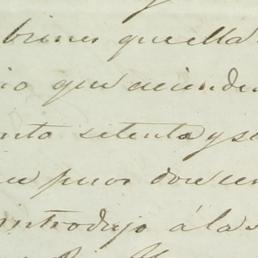 bienes que ella
io que asciende
nto setenta y se
pesos doscien
introdujo á la